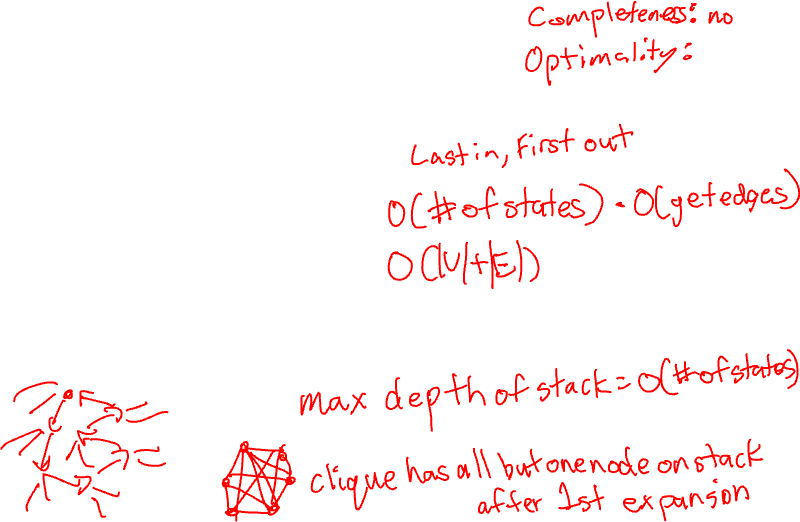 Completeness: no
Optimality:
Last in, First out
O(# of states) · O(getedges)
O(|V|+|E|)
max depth of stack = O(# of states)
clique has all but one node on stack
after 1st expansion